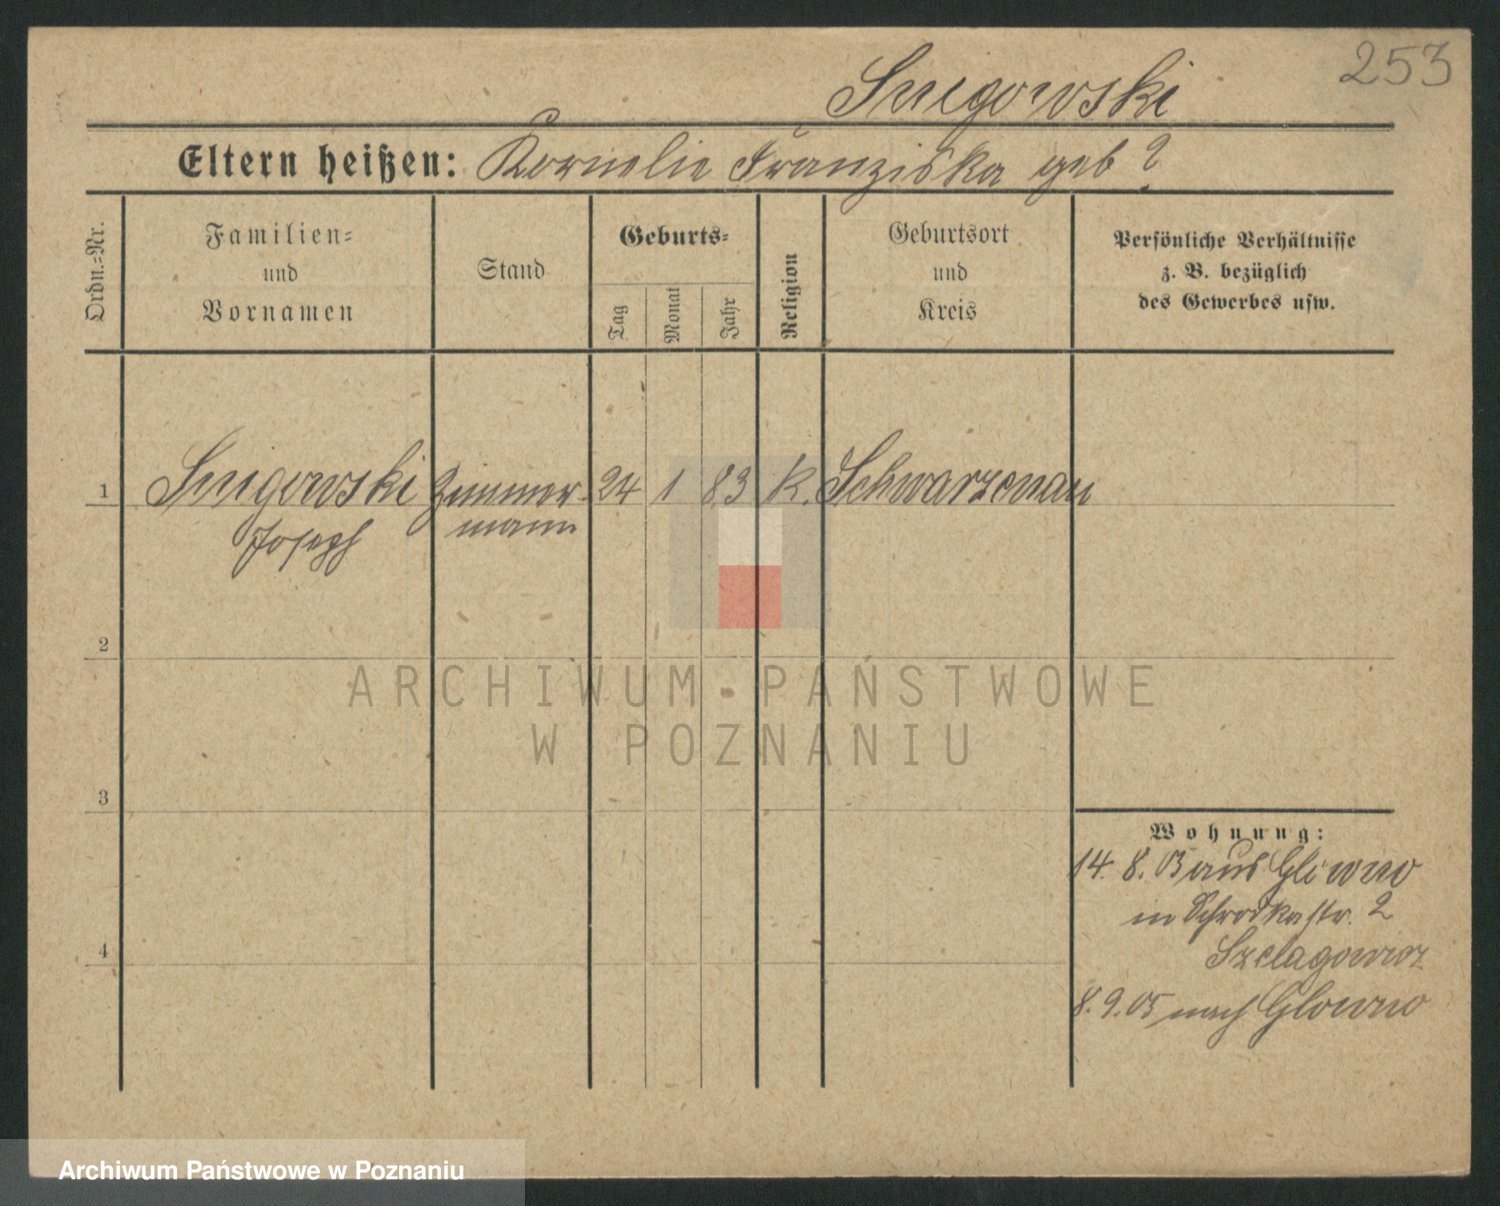 253
Snigowski
Eltern heißen: Kornelie Franziska geb ?
Ordn.=Nr.
Familien=
und
Vornamen
Stand
Geburts=
Tag
Monat
Jahr
Religion
Geburtsort
und
Kreis
Persönliche Verhältnisse
z. B. bezüglich
des Gewerbes usw.
1 Snigowski Zimmer- 24 1 83 K. Schwarzenau
Joseph mann
2
3
4
Wohnung:
14. 8. 05 aus Glowno
in Schrodkastr. 2
Szelagowicz
8. 9. 05 nach Glowno
ARCHIWUM PAŃSTWOWE
W POZNANIU
Archiwum Państwowe w Poznaniu